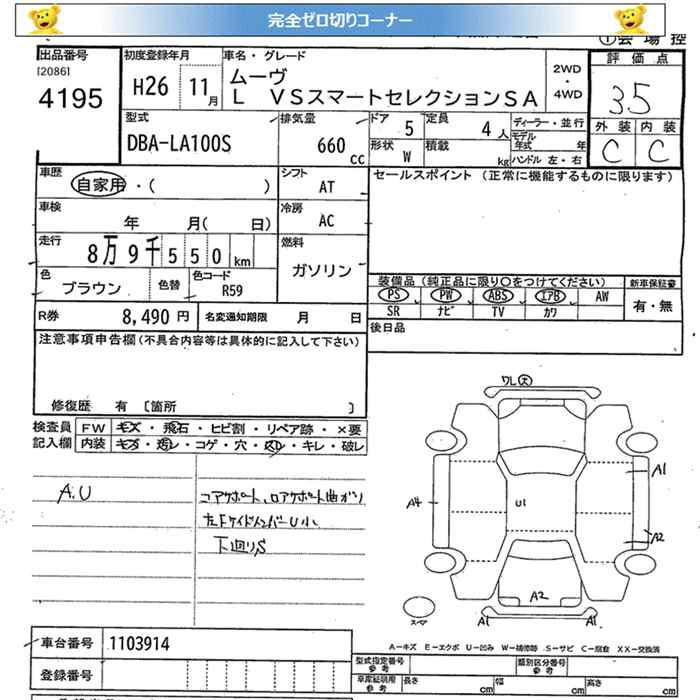 完全ゼロ切りコーナー
出品番号
[2086]
4195
初度登録年月
H26 11月
車名・グレード
ムーヴ
L VSスマートセレクションSA
2WD
・
4WD
評価点
3.5
外装 内装
C C
型式
DBA-LA100S
排気量
660
cc
ドア 5
定員 4人
ディーラー・並行
モデル年式 年
形状 W
積載 kg
ハンドル 左・右
車歴
自家用・( )
シフト
AT
セールスポイント (正常に機能するものに限ります)
車検
年 月( 日)
冷房
AC
走行
8万9千550km
燃料
ガソリン
色
ブラウン
色替
色コード
R59
装備品 (純正品に限り○をつけてください)
新車保証書
PS PW ABS エアB AW
有・無
SR ナビ TV カワ
R券 8,490円
名変通知期限 月 日
後日品
注意事項申告欄(不具合内容等は具体的に記入して下さい)
修復歴 有 〔箇所 〕
検査員
記入欄
FW キズ・飛石・ヒビ割・リペア跡・×要
内装 キズ・汚レ・コゲ・穴・スレ・キレ・破レ
A.U
コアサポート、ロアサポート曲がり
左Fサイドメンバー U小
下廻りS
ワレ大
A1
A4
U1
A2
A2
スペア
A1
A1
車台番号 1103914
A-キズ E-エクボ U-凹み W-補修跡 S-サビ C-腐食 XX-交換済
登録番号
型式指定番号
参考
類別区分番号
参考
車庫証明用
参考
長さ cm
幅 cm
高さ cm